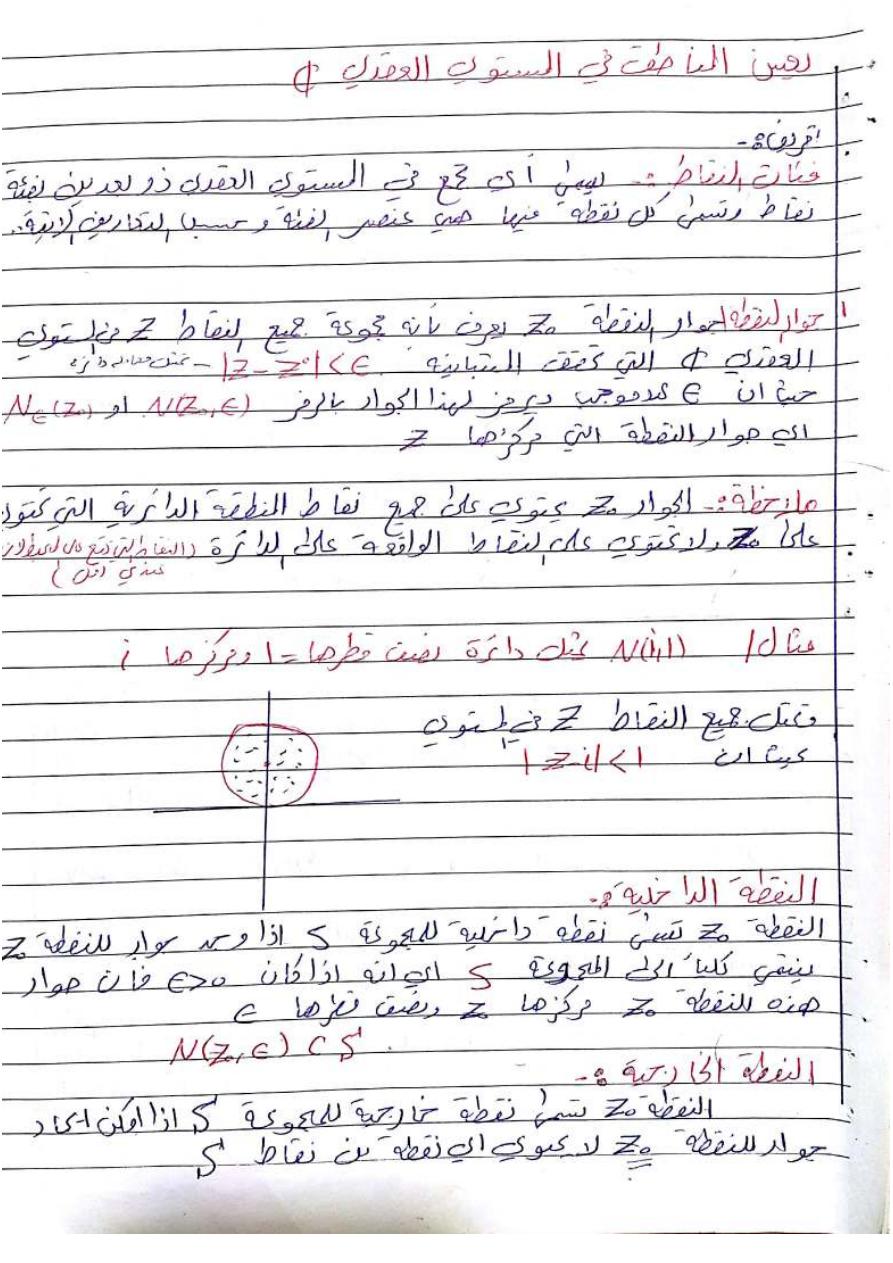 تعين المناطق في المستوي العقدي ₵
تعريف:-
فئات النقاط:- يسمى أي تجمع في المستوي العقدي ذو بعدين بفئة
نقاط وتسمى كل نقطة فيها هي عنصر الفئة و حسب التعاريف الاتية..
1 جوار النقطة/ جوار النقطة Z₀ يعرف بأنه مجموعة جميع النقاط Z في المستوي
العقدي ₵ التي تحقق المتباينة |Z-Z₀|<ϵ -
حيث ان ϵ عدد موجب ويرمز لهذا الجوار بالرمز N(Z₀,ϵ) او Nϵ(Z₀)
اي جوار النقطة التي مركزها Z
ملاحظة:- الجوار Z₀ يحتوي على جميع نقاط المنطقة الدائرية التي تحتوي
على Z₀ ولا تحتوي على النقاط الواقعة على الدائرة (النقاط التي تقع على
عندي اقل)
مثال/ N(i,1) يمثل دائرة نصف قطرها =1 ومركزها i
وتمثل جميع النقاط Z في المستوي
بحيث ان |Z-i|<1
النقطة الداخلية:-
النقطة Z₀ تسمى نقطة داخلية للمجموعة S اذا وجد جوار للنقطة Z₀
ينتمي كليا الى المجموعة S اي انه اذا كان ϵ>0 فأن جوار
هذه النقطة Z₀ مركزها Z₀ ونصف قطرها ϵ
N(Z₀,ϵ) ⊂ S
النقطة الخارجية:-
النقطة Z₀ تسمى نقطة خارجية للمجموعة S اذا امكن ايجاد
جوار للنقطة Z₀ لا يحوي اي نقطة من نقاط S